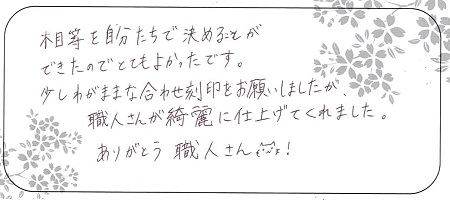 相等を自分たちで決めることが
できたのでとてもよかったです。
少しわがままな合わせ刻印をお願いしましたが、
職人さんが綺麗に仕上げてくれました。
ありがとう 職人さん!